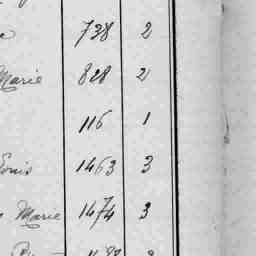 738 2
Marie 828 2
116 1
Louis 1463 3
Marie 1474 3